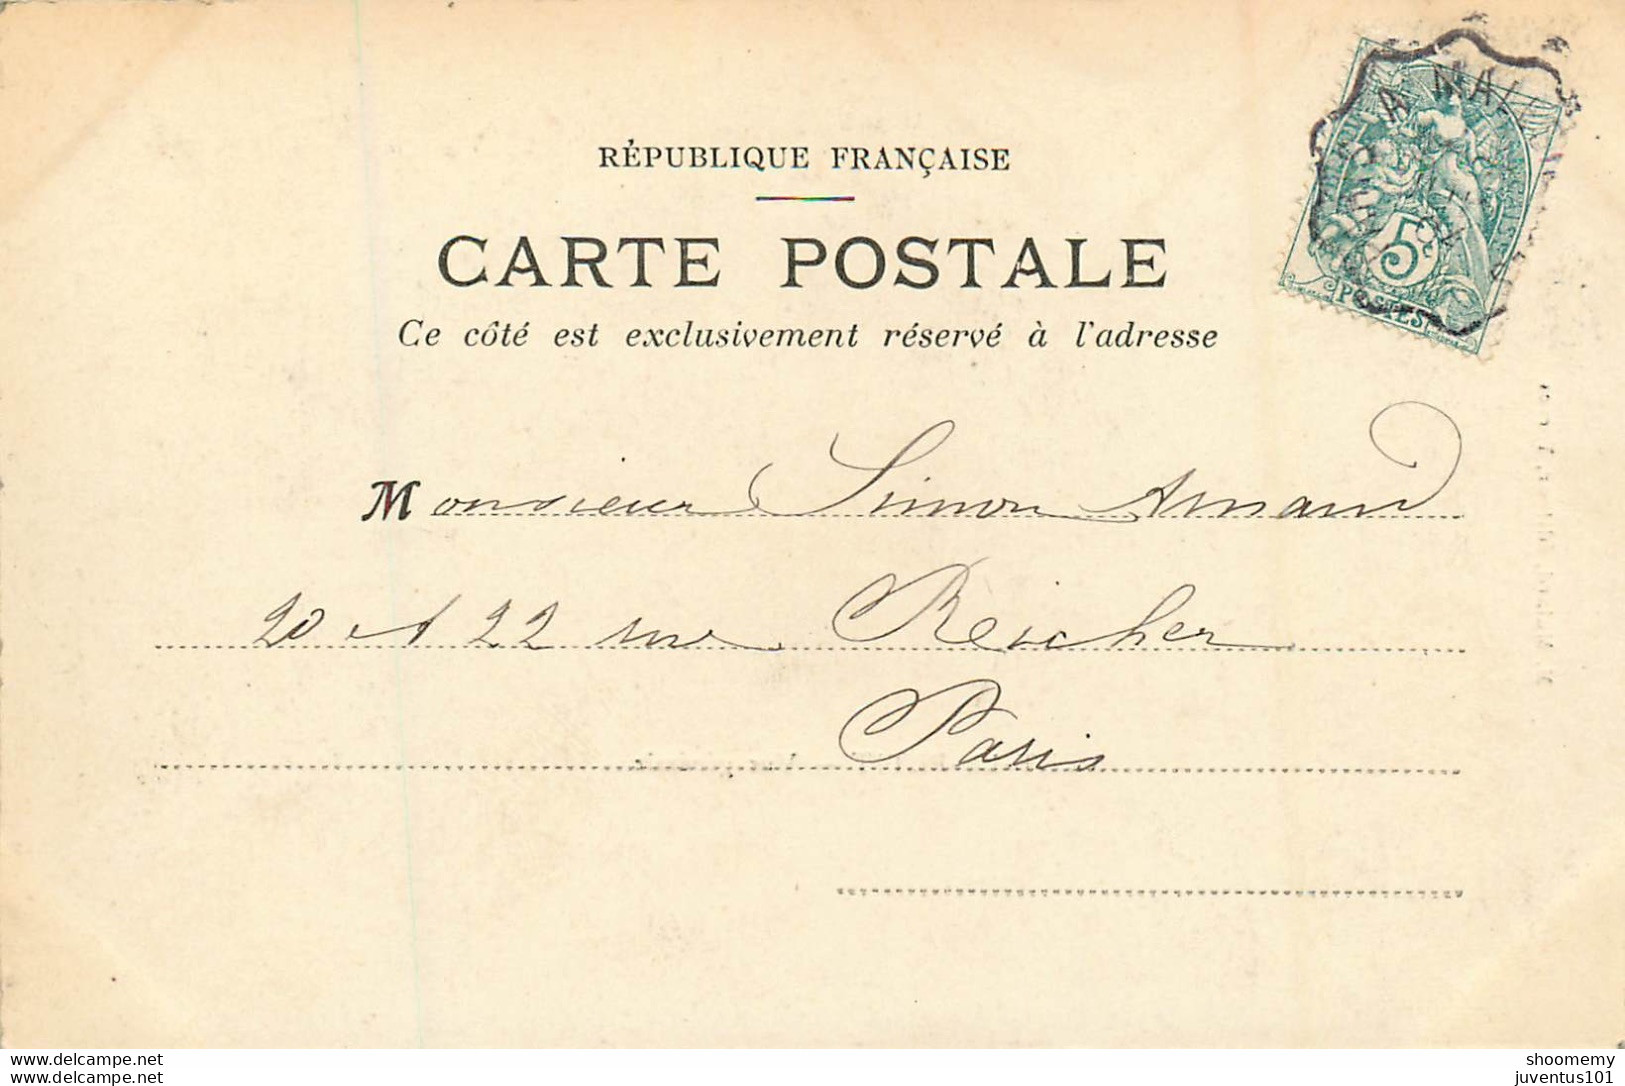 RÉPUBLIQUE FRANÇAISE
CARTE POSTALE
Ce côté est exclusivement réservé à l'adresse
Monsieur Simon Armand
20 et 22 rue Reicher
Paris
A MA
5
POSTES
www.delcampe.net
www.delcampe.net
shoomemy
juventus101